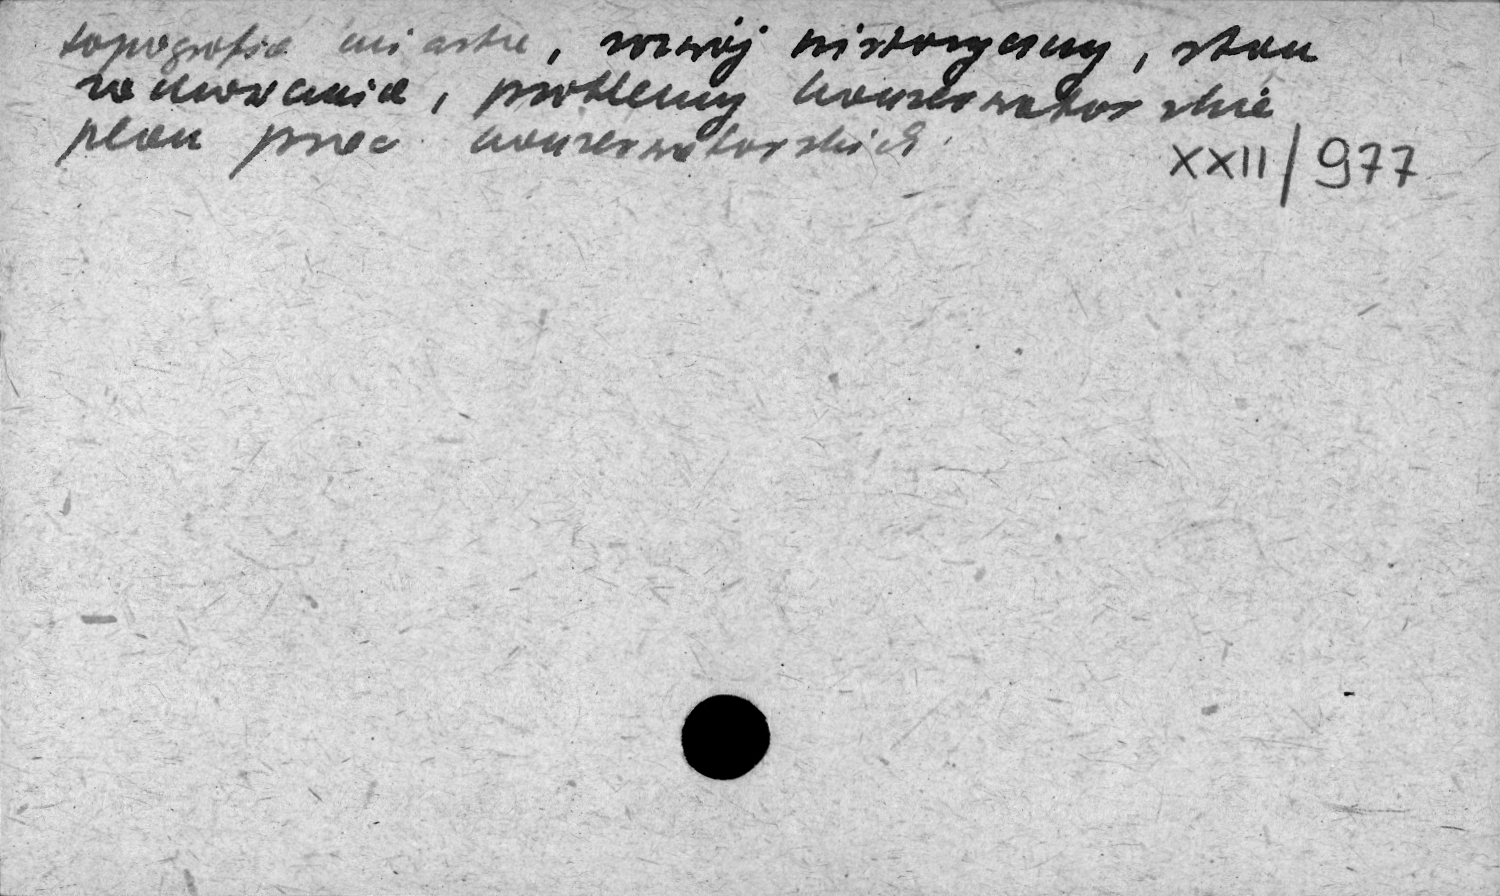 topografia miasta, rozwój historyczny, stan
zachowania, problemy konserwatorskie
plan prac konserwatorskich.
XXII/977